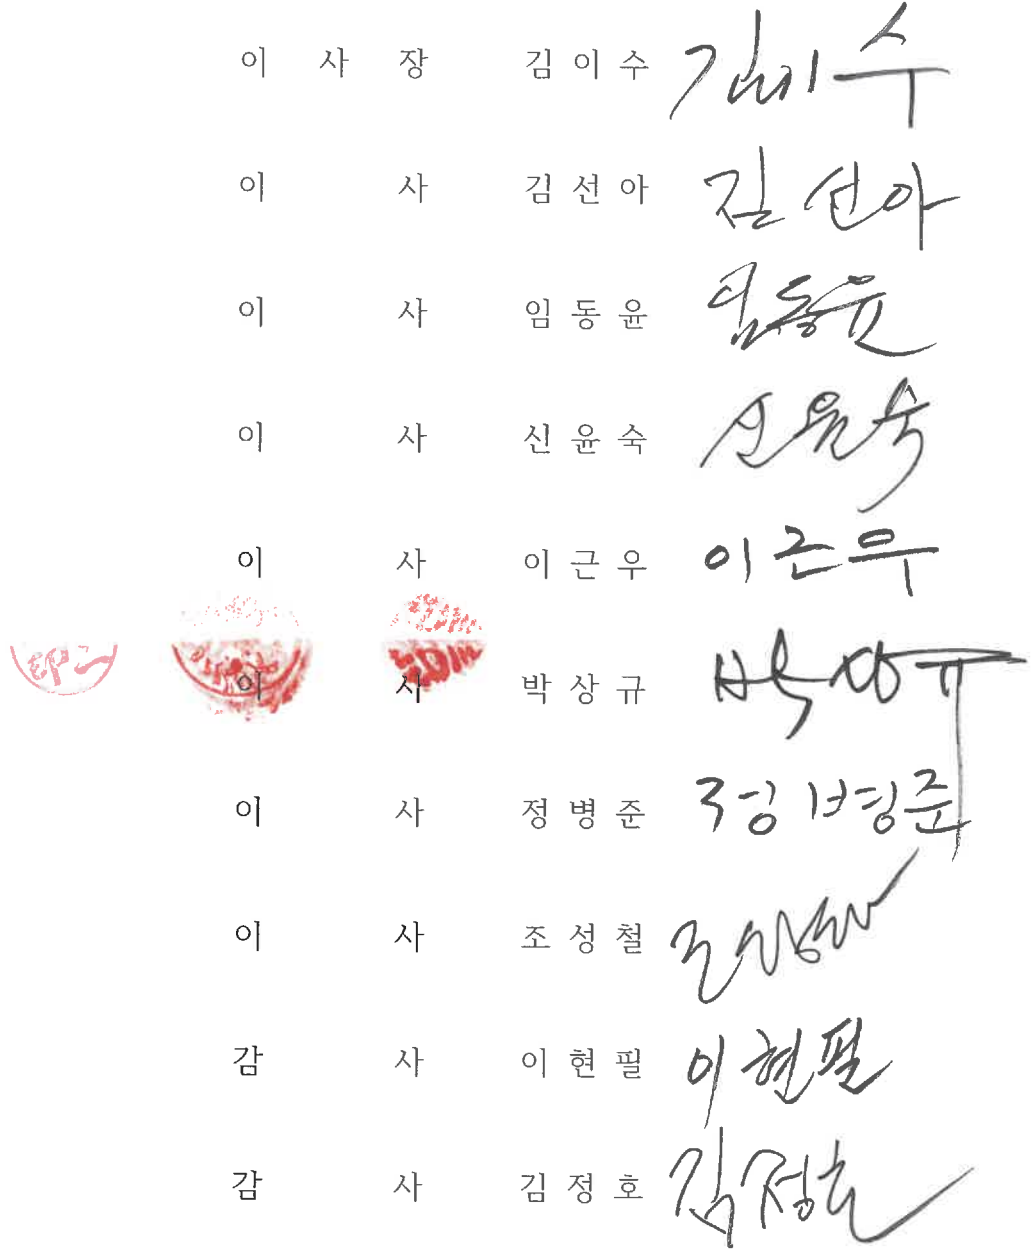 이 사 장 김 이 수 김이수
이 사 김 선 아 김선아
이 사 임 동 윤 임동윤
이 사 신 윤 숙 신윤숙
이 사 이 근 우 이근우
이 사 박 상 규 박상규
이 사 정 병 준 정병준
이 사 조 성 철 조성철
감 사 이 현 필 이현필
감 사 김 정 호 김정호